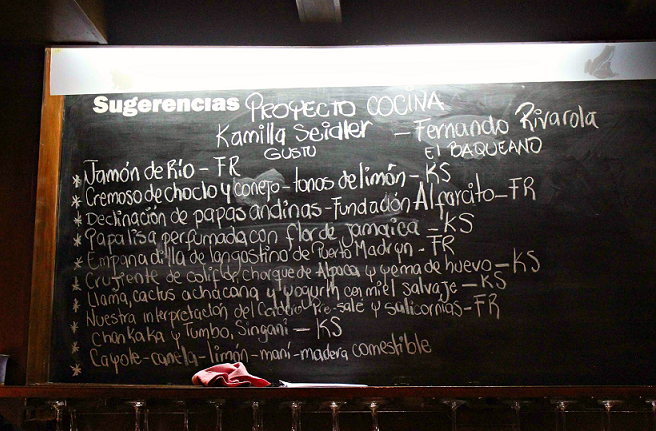 Sugerencias PROYECTO COCINA
Kamilla Seidler - Fernando Rivarola
GUSTU EL BAQUEANO
* Jamón de Río - FR
* Cremoso de choclo y conejo - tonos de limón - KS
* Declinación de papas andinas - Fundación Alparcito - FR
* Papalisa perfumada con flor de jamaica - KS
* Empanadilla de langostino de Puerto Madryn - FR
* Crujiente de charque de Alpaca y yema de huevo - KS
* Llama, cactus achacana y yogurth con miel salvaje - KS
* Nuestra interpretación del Pre-sale y salicornias - FR
* Chankaka y Tumbo, Singani - KS
* Cayote - canela - limón - maní - madera comestible